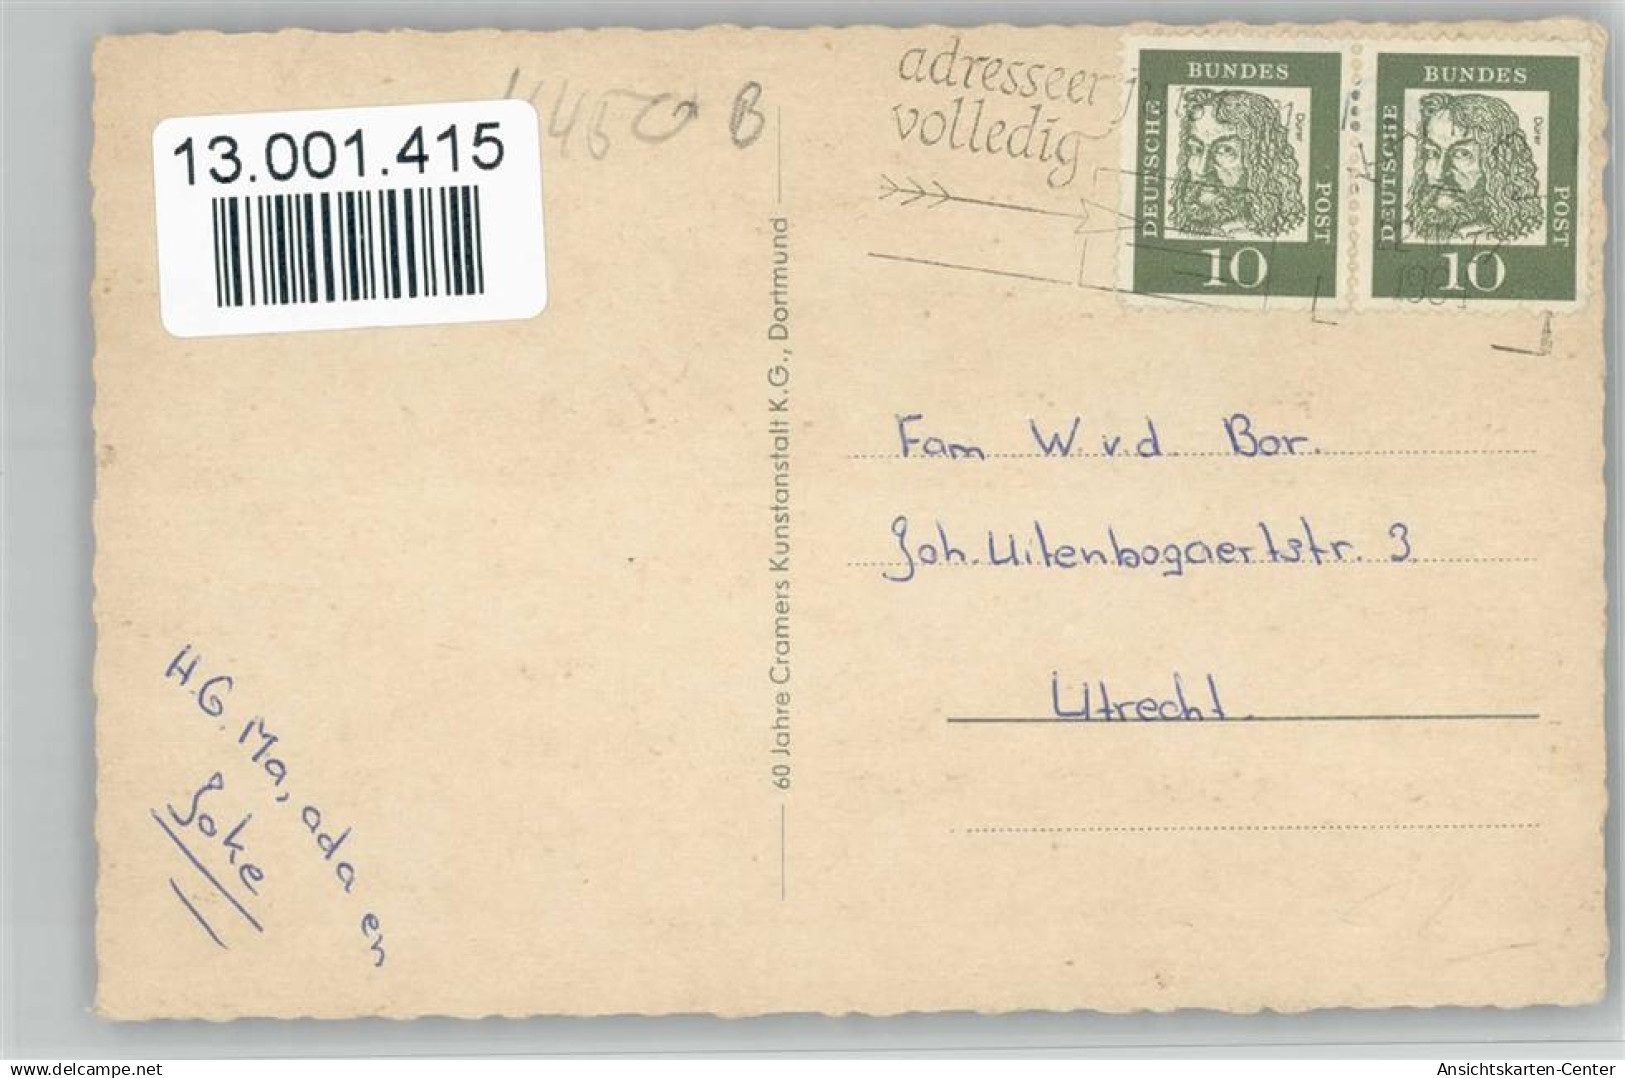 13.001.415
4450 B
adresseer
volledig
BUNDES
DEUTSCHE
POST
Dürer
10
BUNDES
DEUTSCHE
POST
Dürer
10
60 Jahre Cramers Kunstanstalt K.G., Dortmund
Fam W. v.d. Bor.
Joh. Uitenbogaertstr. 3.
Utrecht.
H.G. Ma, ada en
Joke
delcampe.net
Ansichtskarten-Center